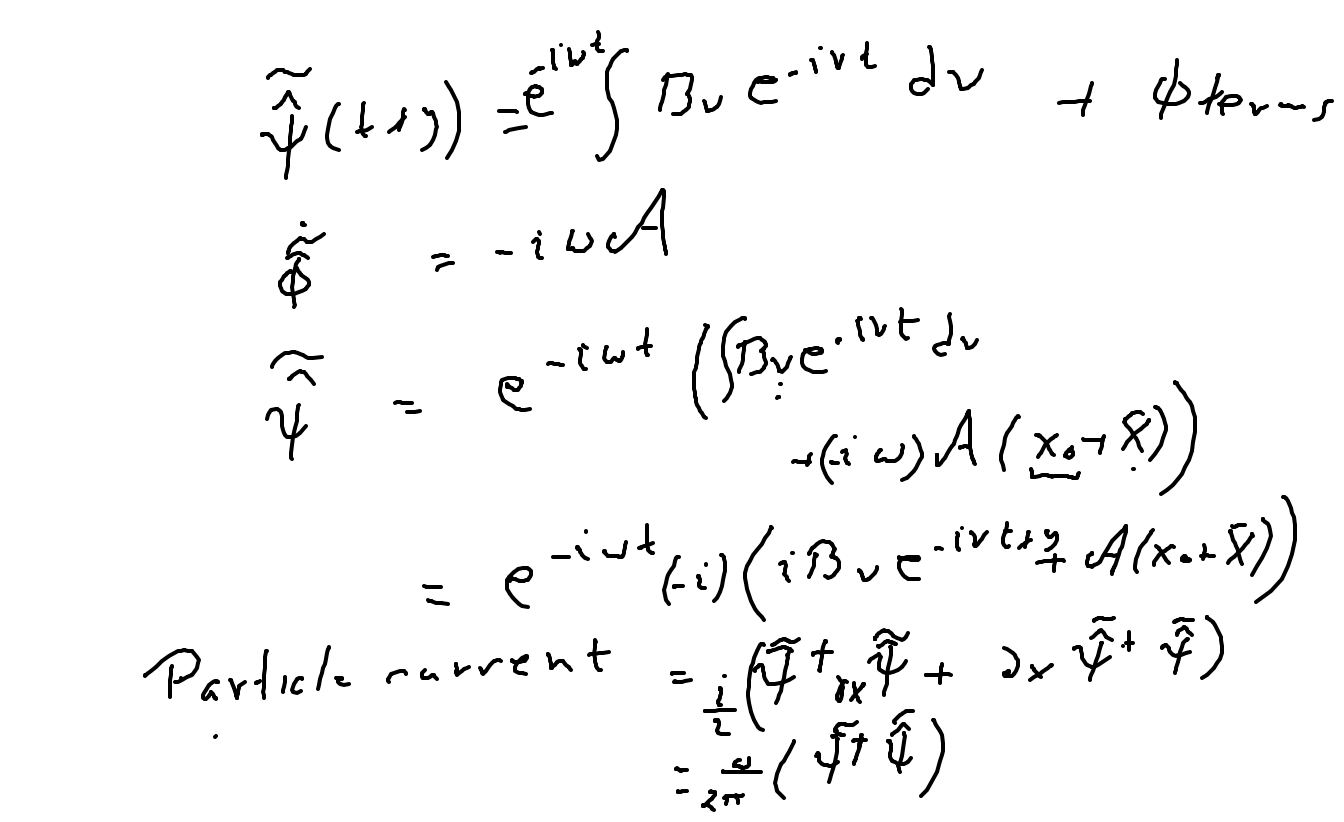 ψ̃̂(t+y) = e^{-iωt} ∫ B_ν e^{-iνt} dν + ϕ terms
ϕ̃̇ = -iω𝒜
ψ̃̂ = e^{-iωt} (∫B_ν e^{-iνt} dν
+(-iω)𝒜(x₀+X̃))
= e^{-iωt} (-i)(iB_ν e^{-iνt+y} + 𝒜(x₀+X̃))
Particle current = i/2 (ψ̃̂† ∂x ψ̃̂ + ∂x ψ̃̂† ψ̃̂)
= ω/2π (ψ̃† ψ̃̂)